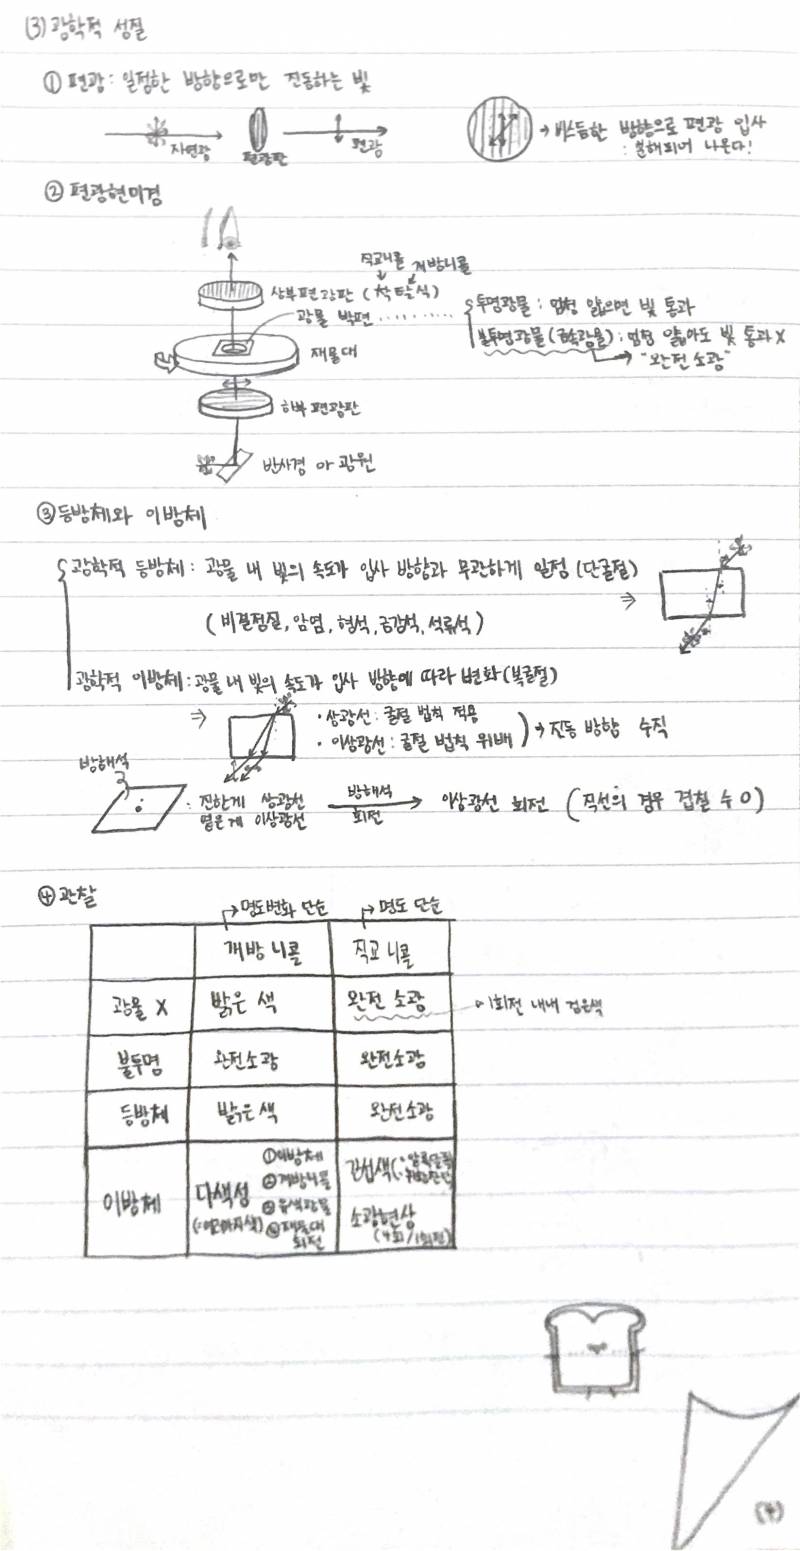 (3) 광학적 성질
① 편광 : 일정한 방향으로만 진동하는 빛
자연광
편광판
편광
→ 비스듬한 방향으로 편광 입사
: 분해되어 나온다!
② 편광현미경
직교니콜 개방니콜
상부편광판 (착탈식)
광물 박편
투명광물 : 엄청 얇으면 빛 통과
불투명광물(금속광물) : 엄청 얇아도 빛 통과 X
→ "완전소광"
재물대
하부 편광판
반사경 or 광원
③ 등방체와 이방체
광학적 등방체 : 광물 내 빛의 속도가 입사 방향과 무관하게 일정 (단굴절)
(비결정질, 암염, 형석, 금강석, 석류석)
광학적 이방체 : 광물 내 빛의 속도가 입사 방향에 따라 변화 (복굴절)
• 상광선 : 굴절 법칙 적용
• 이상광선 : 굴절 법칙 위배
→ 진동 방향 수직
방해석
: 진한게 상광선
옅은게 이상광선
방해석
회전
이상광선 회전 (직선의 경우 겹칠 수 O)
④ 관찰
→ 명도변화 단순
→ 명도 단순
개방 니콜
직교 니콜
광물 X
밝은 색
완전 소광
1회전 내내 검은색
불투명
완전소광
완전소광
등방체
밝은 색
완전소광
이방체
다색성
① 이방체
② 개방니콜
③ 유색광물
④ 재물대
회전
간섭색
소광현상
(4회/1회전)
(4)